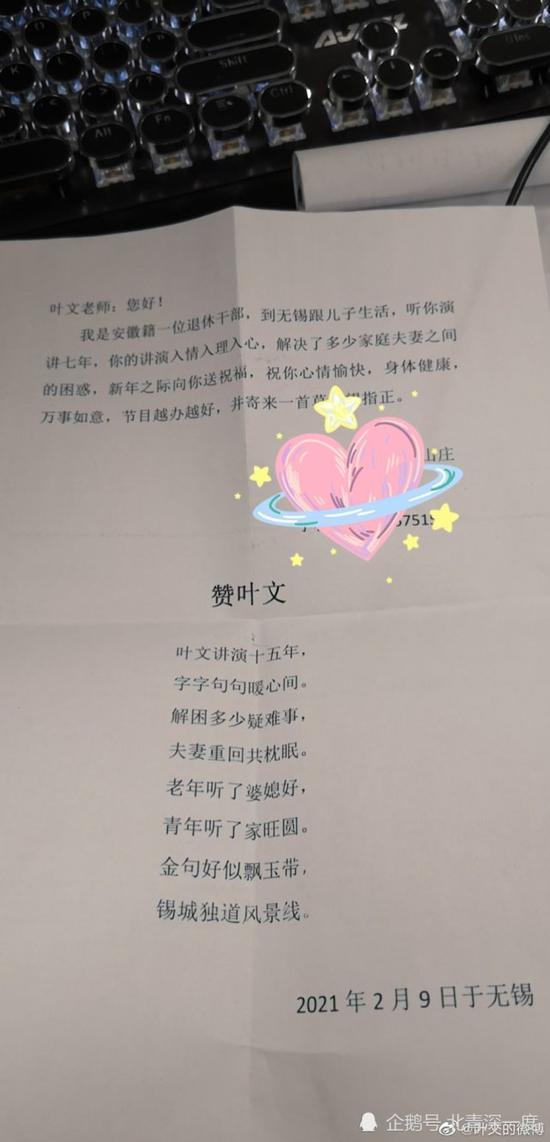 AJAZZ
Shift
Alt
Fn
Ctrl
Ins
叶文老师：您好！
我是安徽籍一位退休干部，到无锡跟儿子生活，听你演
讲七年，你的讲演入情入理入心，解决了多少家庭夫妻之间
的困惑，新年之际向你送祝福，祝你心情愉快，身体健康，
万事如意，节目越办越好，并寄来一首 指正。
山庄
6751
赞叶文
叶文讲演十五年，
字字句句暖心间。
解困多少疑难事，
夫妻重回共枕眠。
老年听了婆媳好，
青年听了家旺圆。
金句好似飘玉带，
锡城独道风景线。
2021 年 2 月 9 日于无锡
企鹅号 北青深一度
@叶文的微博